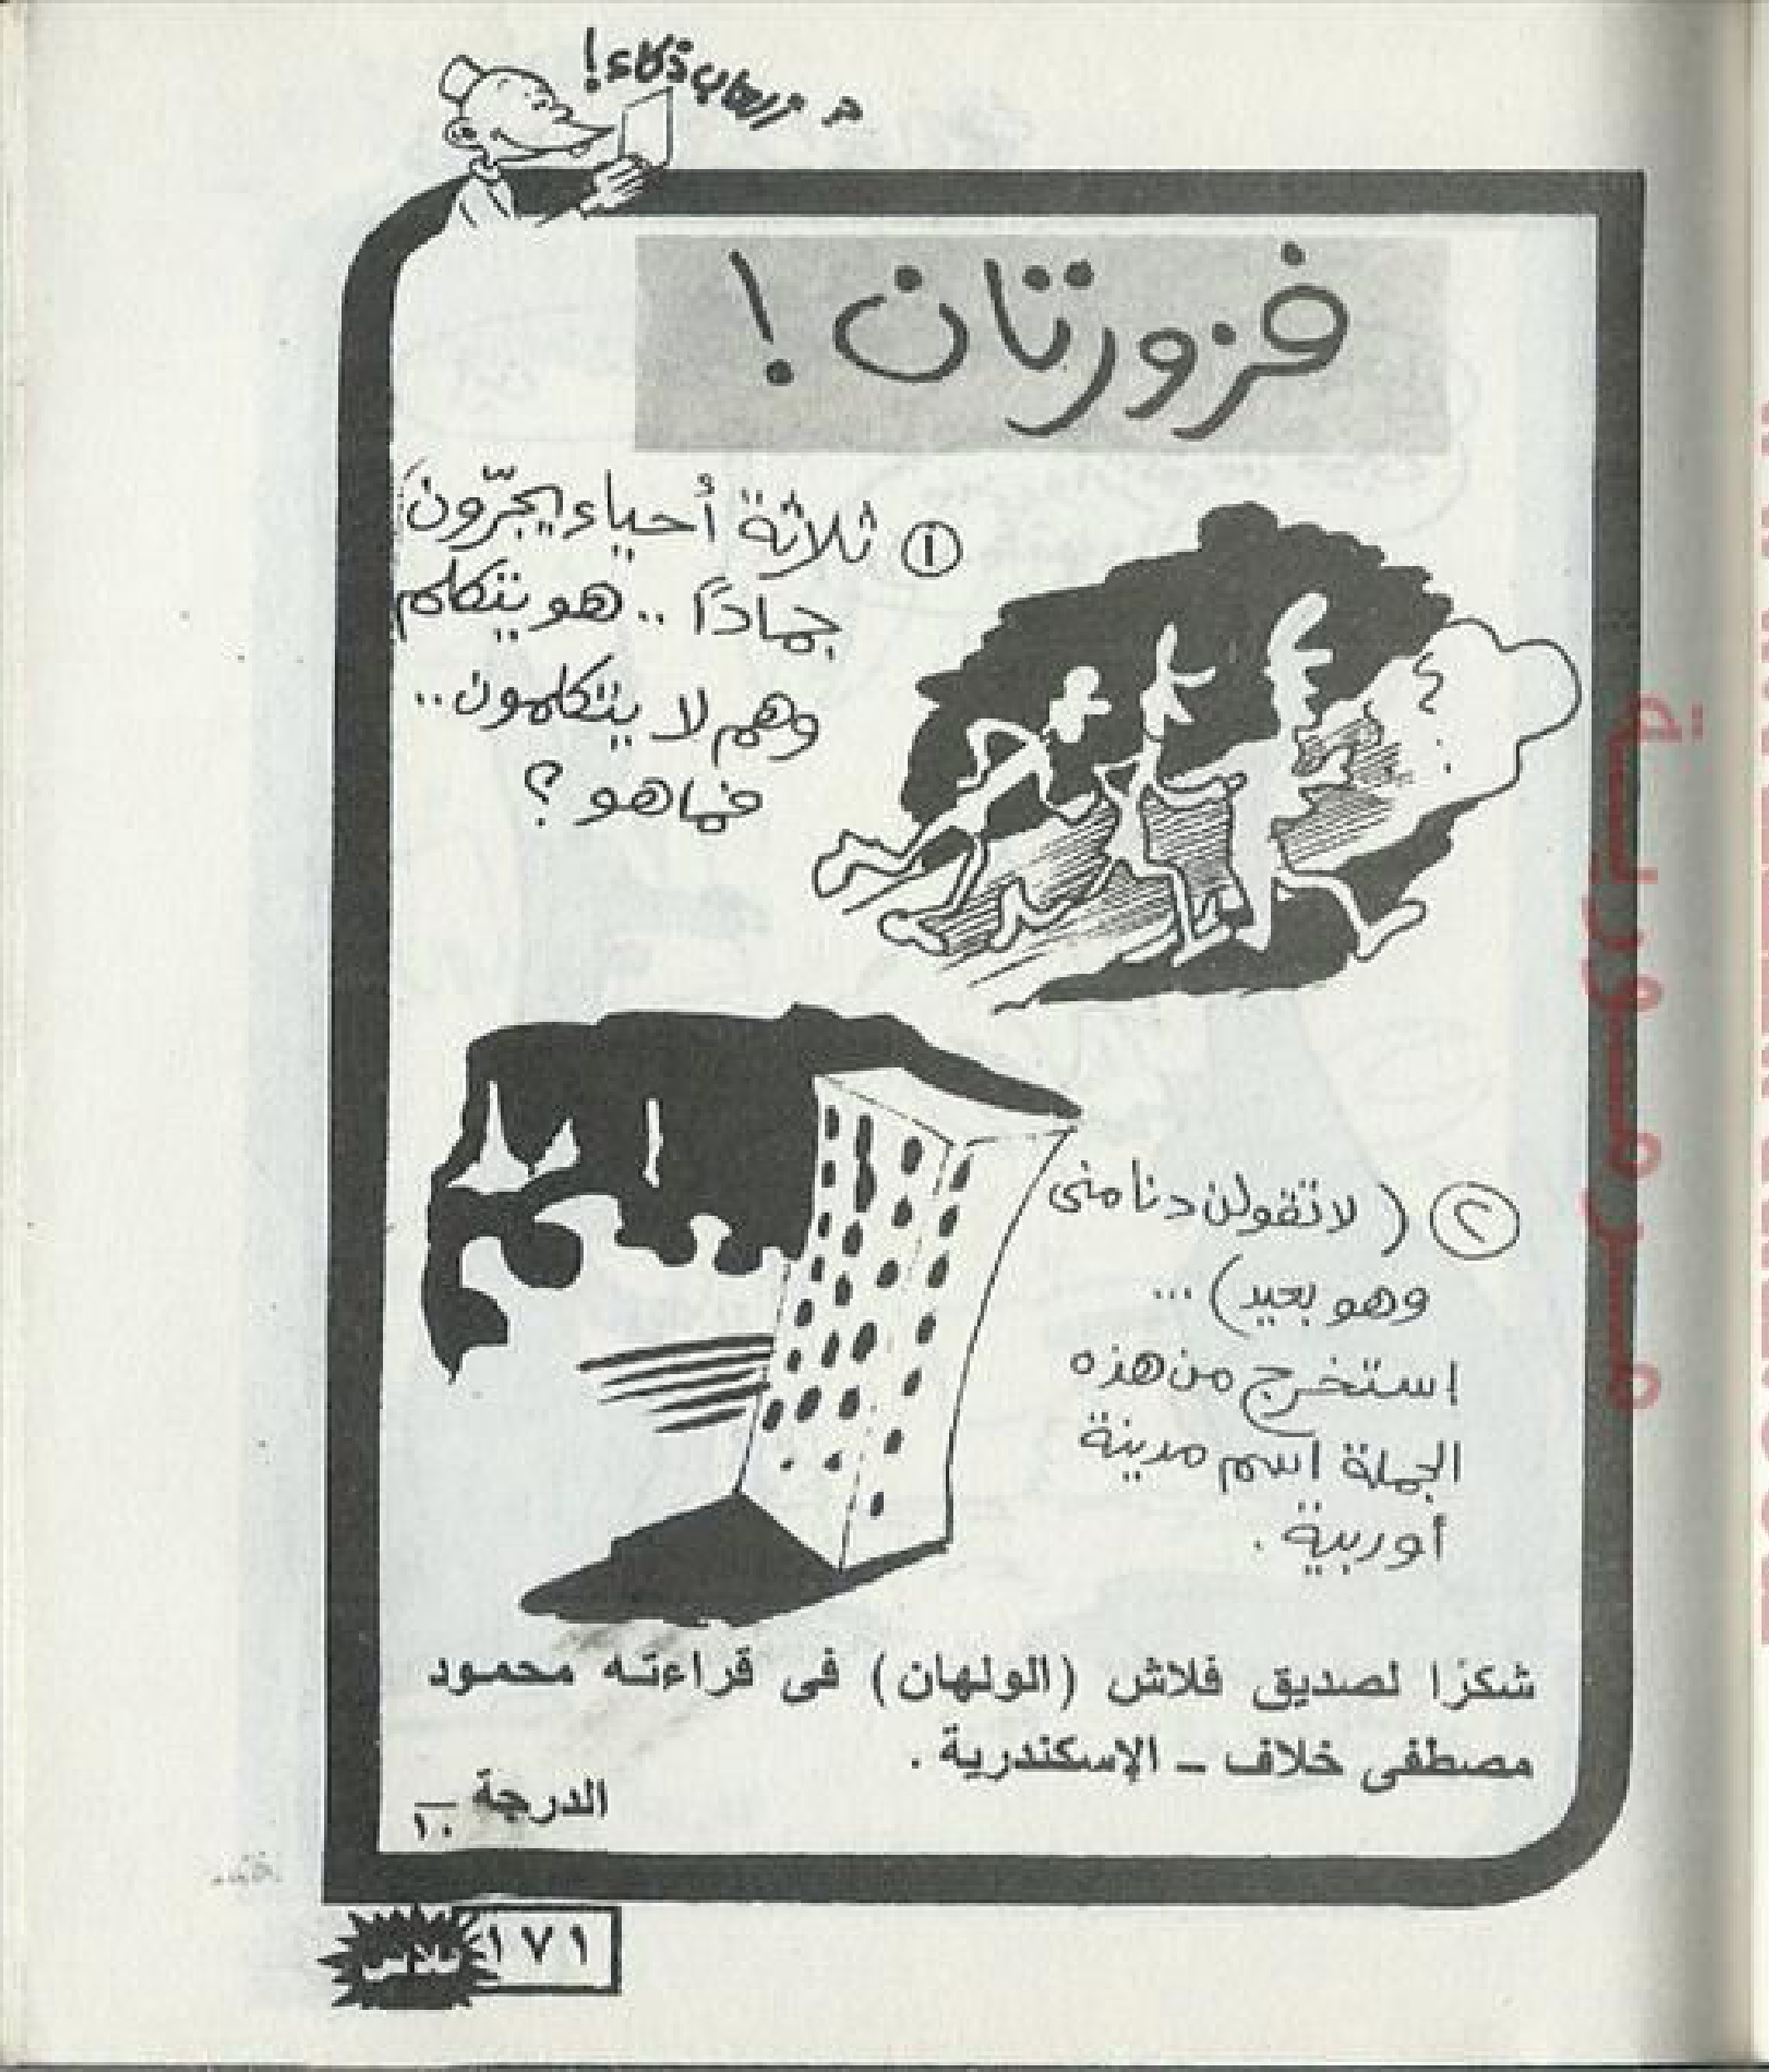 ألعاب ذكاء !
فزورتان !
① ثلاثة أحياء يجرّون
جمادًا .. هو يتكلم
وهم لا يتكلمون ..
فما هو ؟
② ( لا تقولن دنا منى
وهو بعيد ) ...
إستخرج من هذه
الجملة اسم مدينة
أوربية .
شكرًا لصديق فلاش (الولهان) فى قراءته محمود
مصطفى خلاف – الإسكندرية .
الدرجة ١٠
١٧١
فلاش